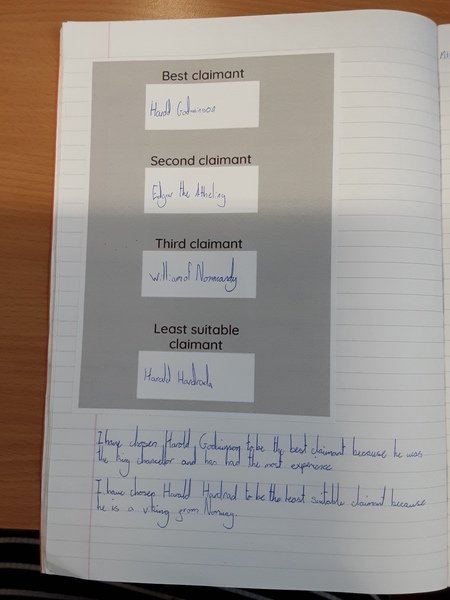 Best claimant
Harold Godwinson
Second claimant
Edgar the Atheling
Third claimant
William of Normandy
Least suitable
claimant
Harald Hardrada
I have chosen Harold Godwinson to be the best claimant because he was
the king chancellor and has had the most experience
I have chosen Harald Hardrad to be the least suitable claimant because
he is a viking from Norway.